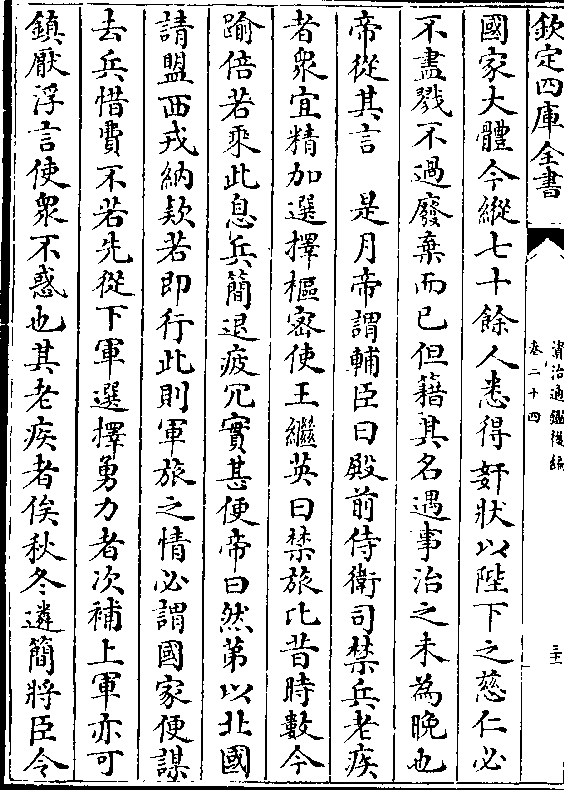 欽定四庫全書
資治通鑑後編
卷二十四
三十
國家大體今縱七十餘人悉得姧狀以陛下之慈仁必
不盡戮不過廢棄而已但籍其名遇事治之未為晚也
帝從其言　是月帝謂輔臣曰殿前侍衛司禁兵老疾
者衆宜精加選擇樞密使王繼英曰禁旅比昔時數今
踰倍若乘此息兵簡退疲冗實甚便帝曰然第以北國
請盟西戎納欵若即行此則軍旅之情必謂國家便謀
去兵惜費不若先從下軍選擇勇力者次補上軍亦可
鎮厭浮言使衆不惑也其老疾者俟秋冬遴簡將臣令